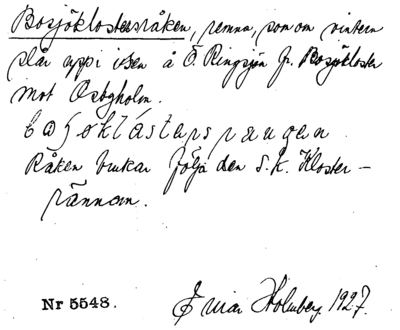 Bosjöklostersråken, remna, som om vintern
slår upp i isen å Ö Ringsjön fr. Bosjökloster
mot Osbyholm.
Råken brukar följa den s.k. Kloster-
rännan.
Nr 5548.
Einar Holmberg 1927.